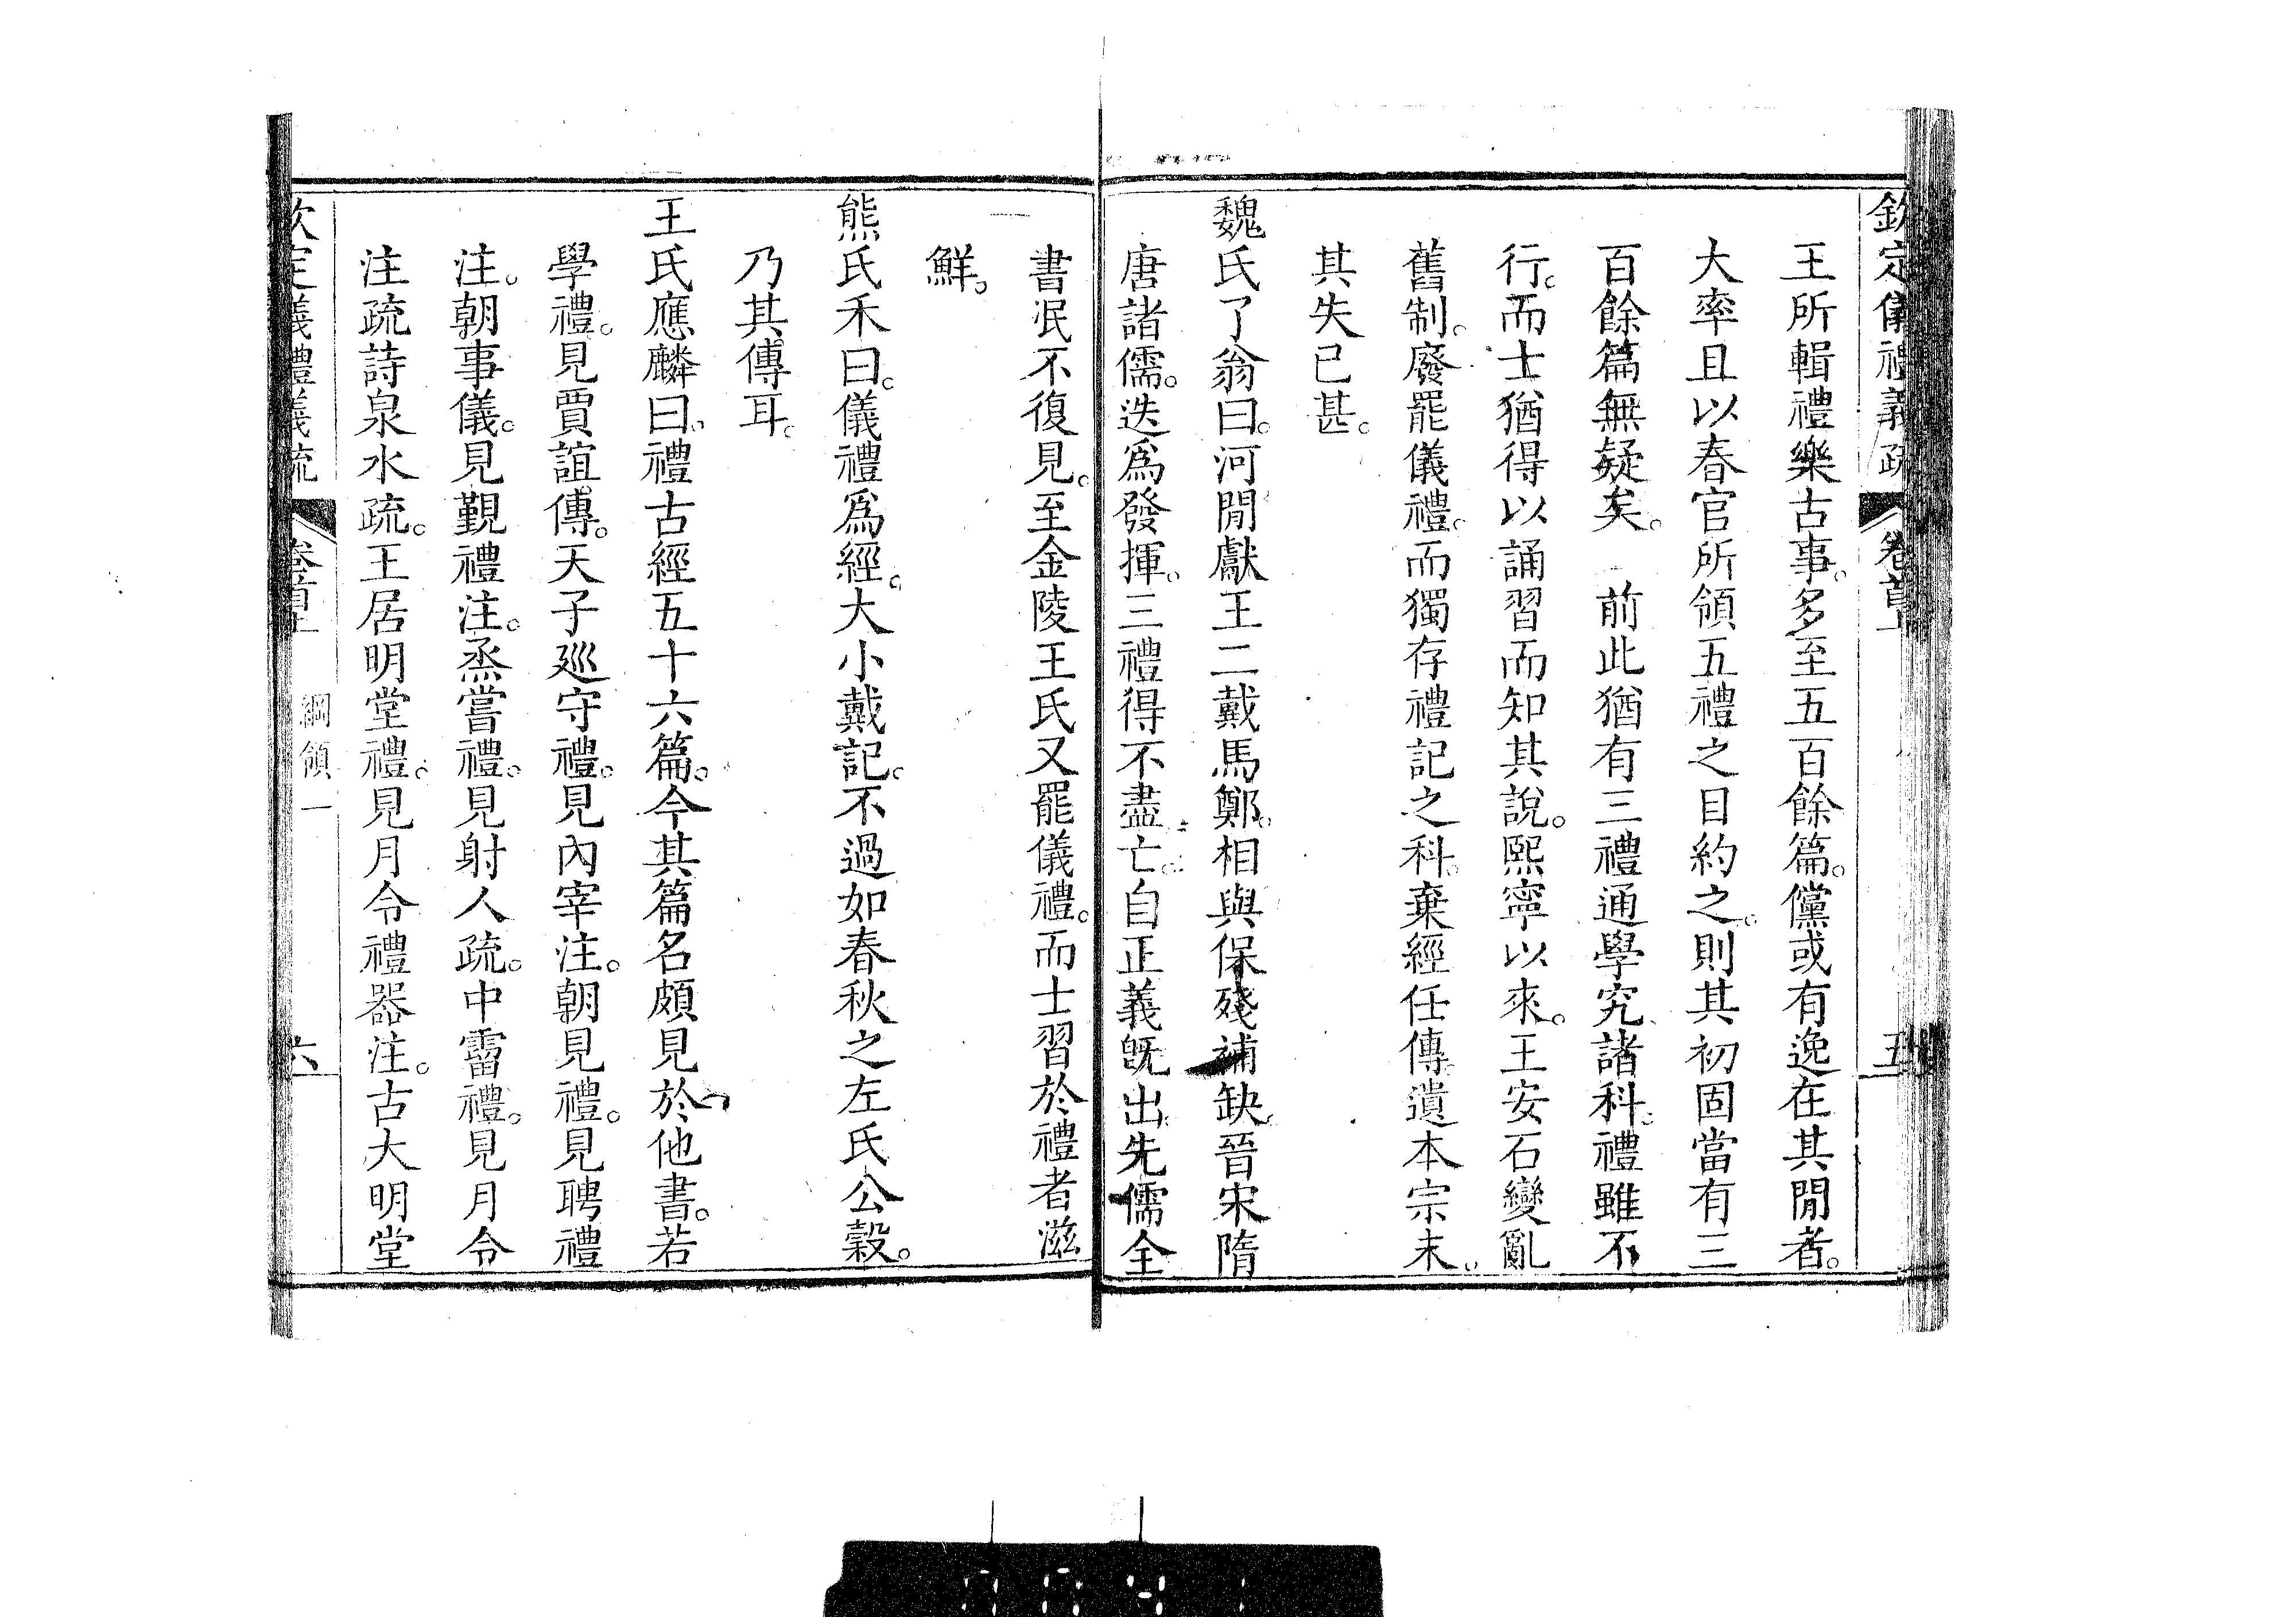 欽定儀禮義疏 卷首上 五
王所輯禮樂古事。多至五百餘篇。儻或有逸在其閒者。
大率且以春官所領五禮之目約之。則其初固當有三
百餘篇無疑矣。 前此猶有三禮通學究諸科。禮雖不
行。而士猶得以誦習而知其說。熙寧以來。王安石變亂
舊制。廢罷儀禮。而獨存禮記之科。棄經任傳。遺本宗末。
其失已甚。
魏氏了翁曰。河閒獻王二戴馬鄭。相與保殘補缺。晉宋隋
唐諸儒。迭爲發揮。三禮得不盡亡。自正義旣出。先儒全
書泯不復見。至金陵王氏又罷儀禮。而士習於禮者滋
鮮。
熊氏禾曰。儀禮爲經。大小戴記。不過如春秋之左氏公穀。
乃其傳耳。
王氏應麟曰。禮古經五十六篇。今其篇名頗見於他書。若
學禮。見賈誼傳。天子巡守禮。見內宰注。朝見禮。見聘禮
注。朝事儀。見覲禮注。烝嘗禮。見射人疏。中霤禮。見月令
注疏詩泉水疏。王居明堂禮。見月令禮器注。古大明堂
欽定儀禮義疏 卷首上 綱領一 六